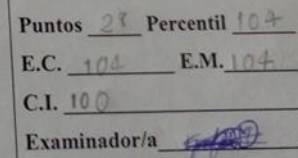 Puntos 28 Percentil 104
E.C. 104 E.M. 104
C.I. 100
Examinador/a